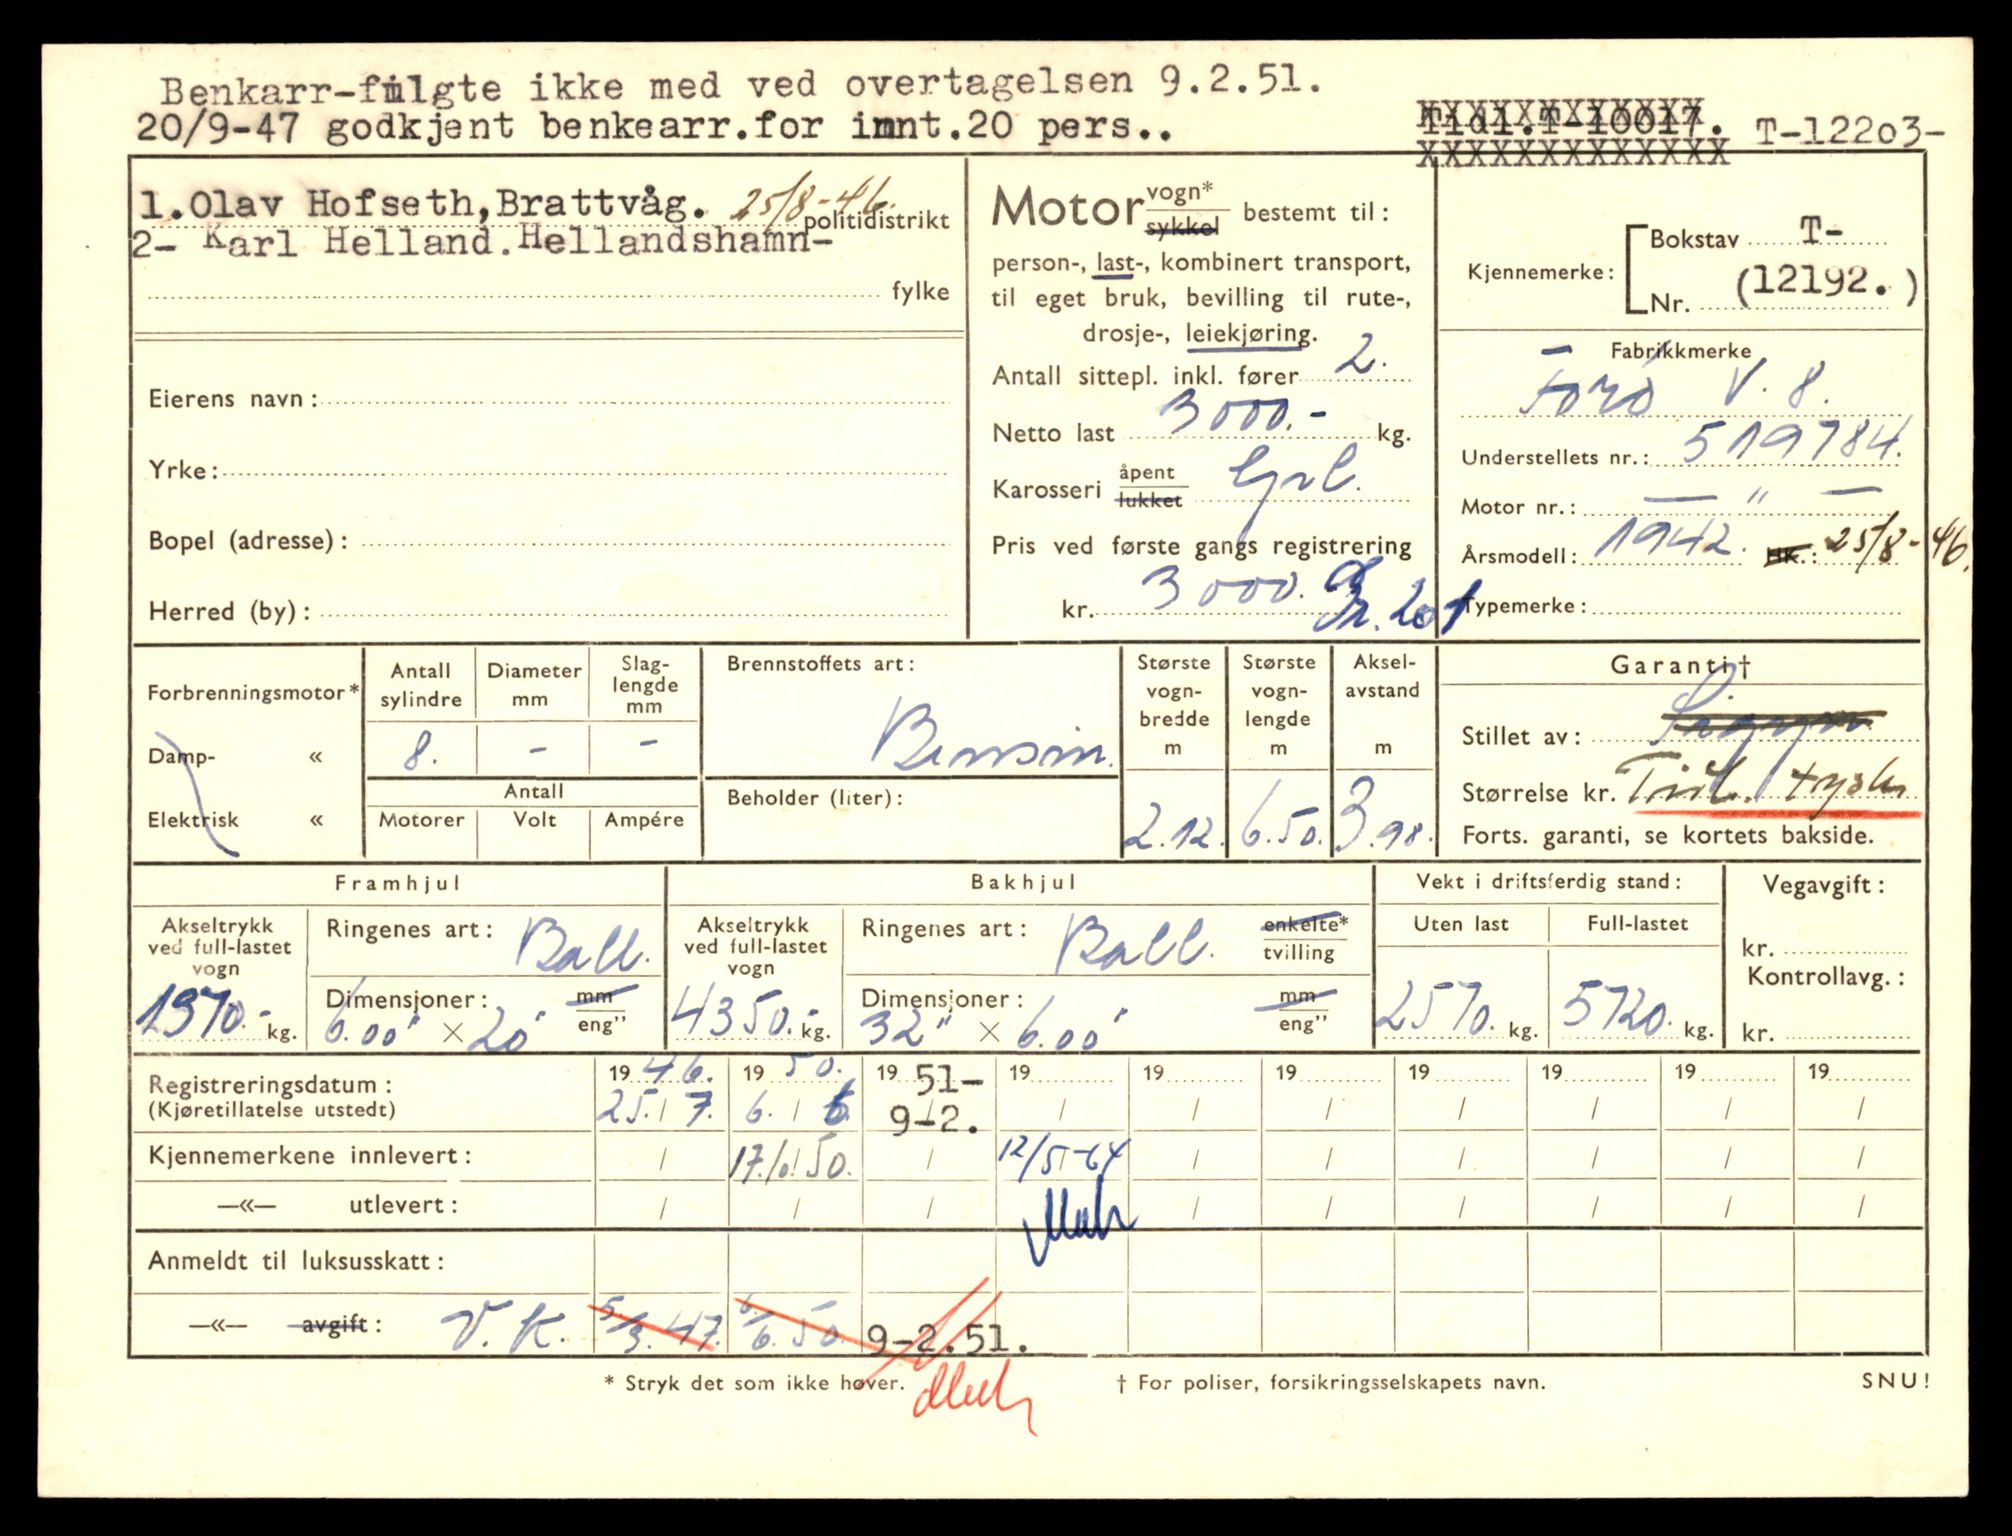 Benkarr-fulgte ikke med ved overtagelsen 9.2.51.
20/9-47 godkjent benkearr.for innt.20 pers..
Tidl.T-10017. T-12203-
1.Olav Hofseth,Brattvåg. 25/8-46.
politidistrikt
2- Karl Helland.Hellandshamn-
fylke
Eierens navn:
Yrke:
Bopel (adresse):
Herred (by):
Motor vogn* sykkel bestemt til:
person-, last-, kombinert transport,
til eget bruk, bevilling til rute-,
drosje-, leiekjøring.
Antall sittepl. inkl. fører 2.
Netto last 3000.- kg.
Karosseri åpent lukket
Pris ved første gangs registrering
kr. 3000.
Kjennemerke: Bokstav T-
Nr. (12192.)
Fabrikkmerke
Ford V.8.
Understellets nr.: 519784.
Motor nr.: — " —
Årsmodell: 1942. HK.: 25/8-46.
Typemerke:
Forbrenningsmotor*
Damp- «
Elektrisk «
Antall sylindre
Diameter mm
Slag-lengde mm
8. - -
Antall
Motorer Volt Ampére
Brennstoffets art:
Bensin.
Beholder (liter):
Største vogn-bredde m
2.12.
Største vogn-lengde m
6.50.
Aksel-avstand m
3.98.
Garanti†
Stillet av:
Størrelse kr. tysk
Forts. garanti, se kortets bakside.
Framhjul
Akseltrykk ved full-lastet vogn
1370.- kg.
Ringenes art: Ball.
Dimensjoner: mm eng”
6.00" × 20"
Bakhjul
Akseltrykk ved full-lastet vogn
4350.- kg.
Ringenes art: Ball. enkelte* tvilling
Dimensjoner: mm eng”
32" × 6.00"
Vekt i driftsferdig stand:
Uten last Full-lastet
2570. kg. 5720. kg.
Vegavgift:
kr.
Kontrollavg.:
kr.
Registreringsdatum: 19 46. 19 50. 19 51- 19 19 19 19 19 19 19
(Kjøretillatelse utstedt) 25. / 7. 6. / 6. 9-2. / / / / / / /
Kjennemerkene innlevert: / 50. / 12/5-64 / / / / / /
—«— utlevert: / / / / / / / / /
Anmeldt til luksusskatt:
—«— avgift: V.K. 5/3.47. 6/6.50. 9-2.51.
* Stryk det som ikke høver.
† For poliser, forsikringsselskapets navn.
SNU!